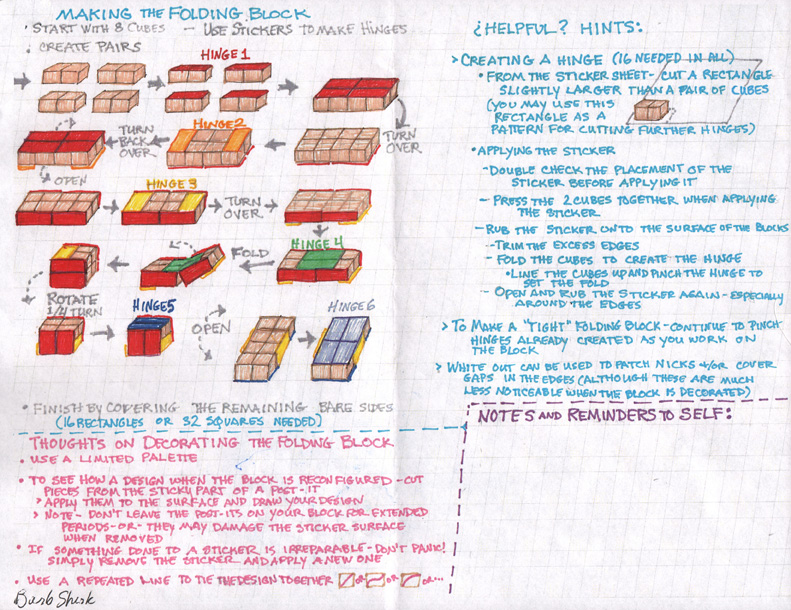 MAKING THE FOLDING BLOCK
• START WITH 8 CUBES — USE STICKERS TO MAKE HINGES
• CREATE PAIRS
HINGE 1
TURN OVER
HINGE 2
TURN BACK OVER
OPEN
HINGE 3
TURN OVER
HINGE 4
FOLD
ROTATE 1/4 TURN
HINGE 5
OPEN
HINGE 6
• FINISH BY COVERING THE REMAINING BARE SIDES
(16 RECTANGLES OR 32 SQUARES NEEDED)
THOUGHTS ON DECORATING THE FOLDING BLOCK
• USE A LIMITED PALETTE
• TO SEE HOW A DESIGN WHEN THE BLOCK IS RECONFIGURED - CUT
PIECES FROM THE STICKY PART OF A POST-IT
> APPLY THEM TO THE SURFACE AND DRAW YOUR DESIGN
> NOTE - DON'T LEAVE THE POST-ITS ON YOUR BLOCK FOR EXTENDED
PERIODS - OR - THEY MAY DAMAGE THE STICKER SURFACE
WHEN REMOVED
• IF SOMETHING DONE TO A STICKER IS IRREPARABLE - DON'T PANIC!
SIMPLY REMOVE THE STICKER AND APPLY A NEW ONE
• USE A REPEATED LINE TO TIE THE DESIGN TOGETHER OR OR OR...
Barb Shirk
¿HELPFUL? HINTS:
> CREATING A HINGE (16 NEEDED IN ALL)
• FROM THE STICKER SHEET - CUT A RECTANGLE
SLIGHTLY LARGER THAN A PAIR OF CUBES
(YOU MAY USE THIS
RECTANGLE AS A
PATTERN FOR CUTTING FURTHER HINGES)
• APPLYING THE STICKER
- DOUBLE CHECK THE PLACEMENT OF THE
STICKER BEFORE APPLYING IT
- PRESS THE 2 CUBES TOGETHER WHEN APPLYING
THE STICKER
- RUB THE STICKER ONTO THE SURFACE OF THE BLOCKS
- TRIM THE EXCESS EDGES
- FOLD THE CUBES TO CREATE THE HINGE
• LINE THE CUBES UP AND PINCH THE HINGE TO
SET THE FOLD
- OPEN AND RUB THE STICKER AGAIN - ESPECIALLY
AROUND THE EDGES
> TO MAKE A "TIGHT" FOLDING BLOCK - CONTINUE TO PINCH
HINGES ALREADY CREATED AS YOU WORK ON
THE BLOCK
> WHITE OUT CAN BE USED TO PATCH NICKS +/OR COVER
GAPS IN THE EDGES (ALTHOUGH THESE ARE MUCH
LESS NOTICEABLE WHEN THE BLOCK IS DECORATED)
NOTES AND REMINDERS TO SELF: